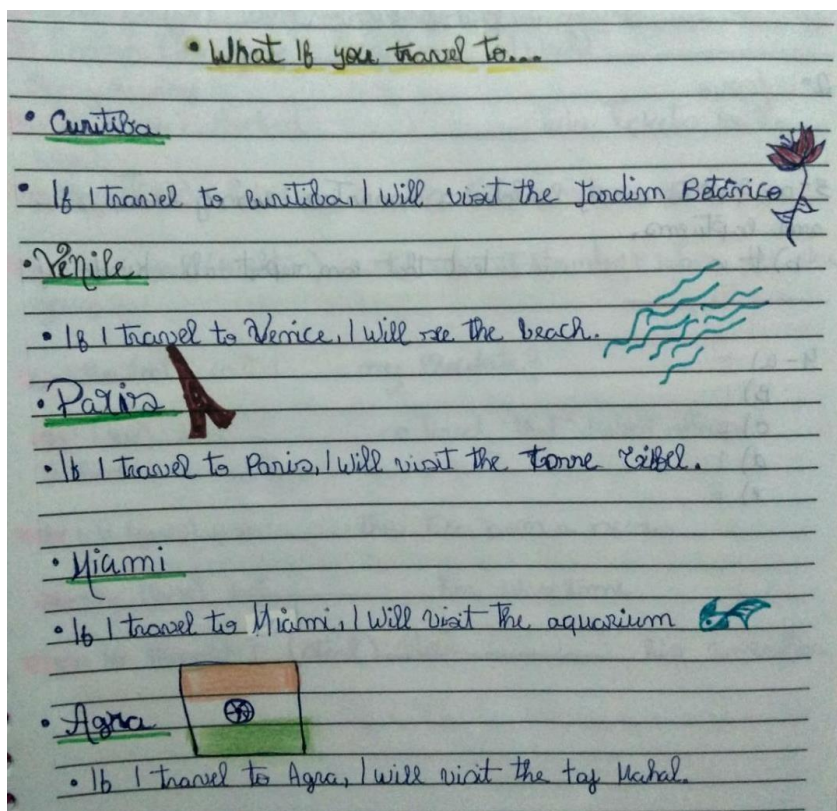 • What If you travel to...
• Curitiba
• If I travel to Curitiba, I will visit the Jardim Botânico
• Venile
• If I travel to Venice, I will see the beach.
• Paris
• If I travel to Paris, I will visit the torre Eifel.
• Miami
• If I travel to Miami, I will visit the aquarium
• Agra
• If I travel to Agra, I will visit the taj Mahal.